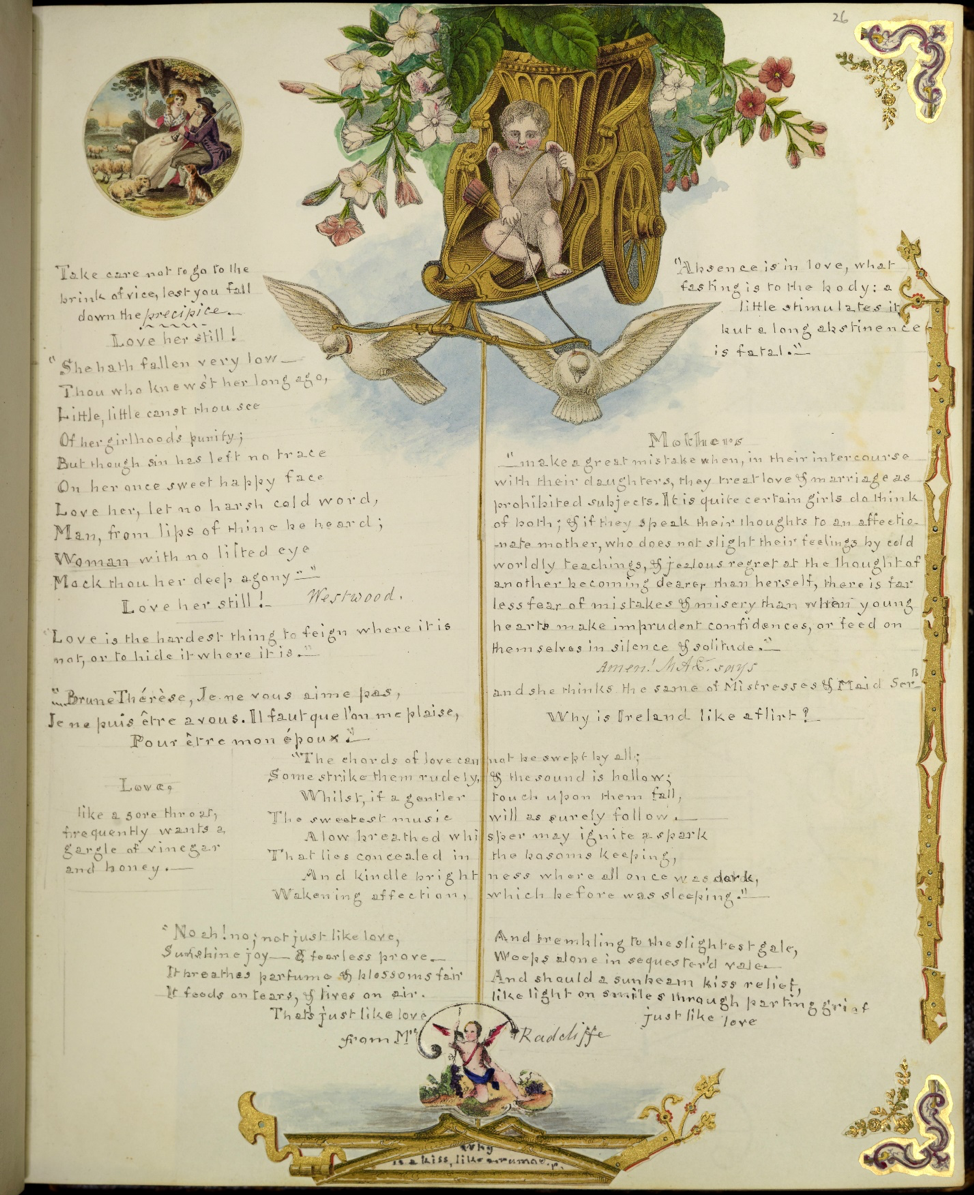 26
Take care not to go to the
brink of vice, lest you fall
down the precipice.
Love her still!
"She hath fallen very low—
Thou who knew'st her long ago,
Little, little canst thou see
Of her girlhood's purity;
But though sin has left no trace
On her once sweet happy face
Love her, let no harsh cold word,
Man, from lips of thine be heard;
Woman with no lifted eye
Mock thou her deep agony—"
Love her still! Westwood.
"Love is the hardest thing to feign where it is
not, or to hide it where it is."
"Brune Thérèse, Je ne vous aime pas,
Je ne puis être a vous. Il faut que l'on me plaise,
Pour être mon époux"
Love,
like a sore throat,
frequently wants a
gargle of vinegar
and honey.—
"Absence is in love, what
fasting is to the body: a
little stimulates it,
but a long abstinence
is fatal."
Mothers
"make a great mistake when, in their intercourse
with their daughters, they treat love & marriage as
prohibited subjects. It is quite certain girls do think
of both; & if they speak their thoughts to an affectio-
-nate mother, who does not slight their feelings by cold
worldly teachings, & jealous regret at the thought of
another becoming dearer than herself, there is far
less fear of mistakes & misery than when young
hearts make imprudent confidences, or feed on
themselves in silence & solitude."
Amen! says
and she thinks the same of Mistresses & Maid Ser
Why is Ireland like a flirt?
"The chords of love cannot be swept by all;
Some strike them rudely, & the sound is hollow;
Whilst, if a gentler touch upon them fall,
The sweetest music will as surely follow.
A low breathed whisper may ignite a spark
That lies concealed in the bosoms keeping,
And kindle brightness where all once was dark,
Wakening affection, which before was sleeping."
"No ah! no; not just like love,
Sunshine joy— & fearless prove.
It breathes parfume & blossoms fair
It feeds on tears, & lives on air.
Thats just like love
And trembling to the slightest gale,
Weeps alone in sequester'd vale
And should a sunbeam kiss relief,
like light on smiles through parting grief
just like love
from Mrs Radcliffe
Why
is a kiss, like a rumor.